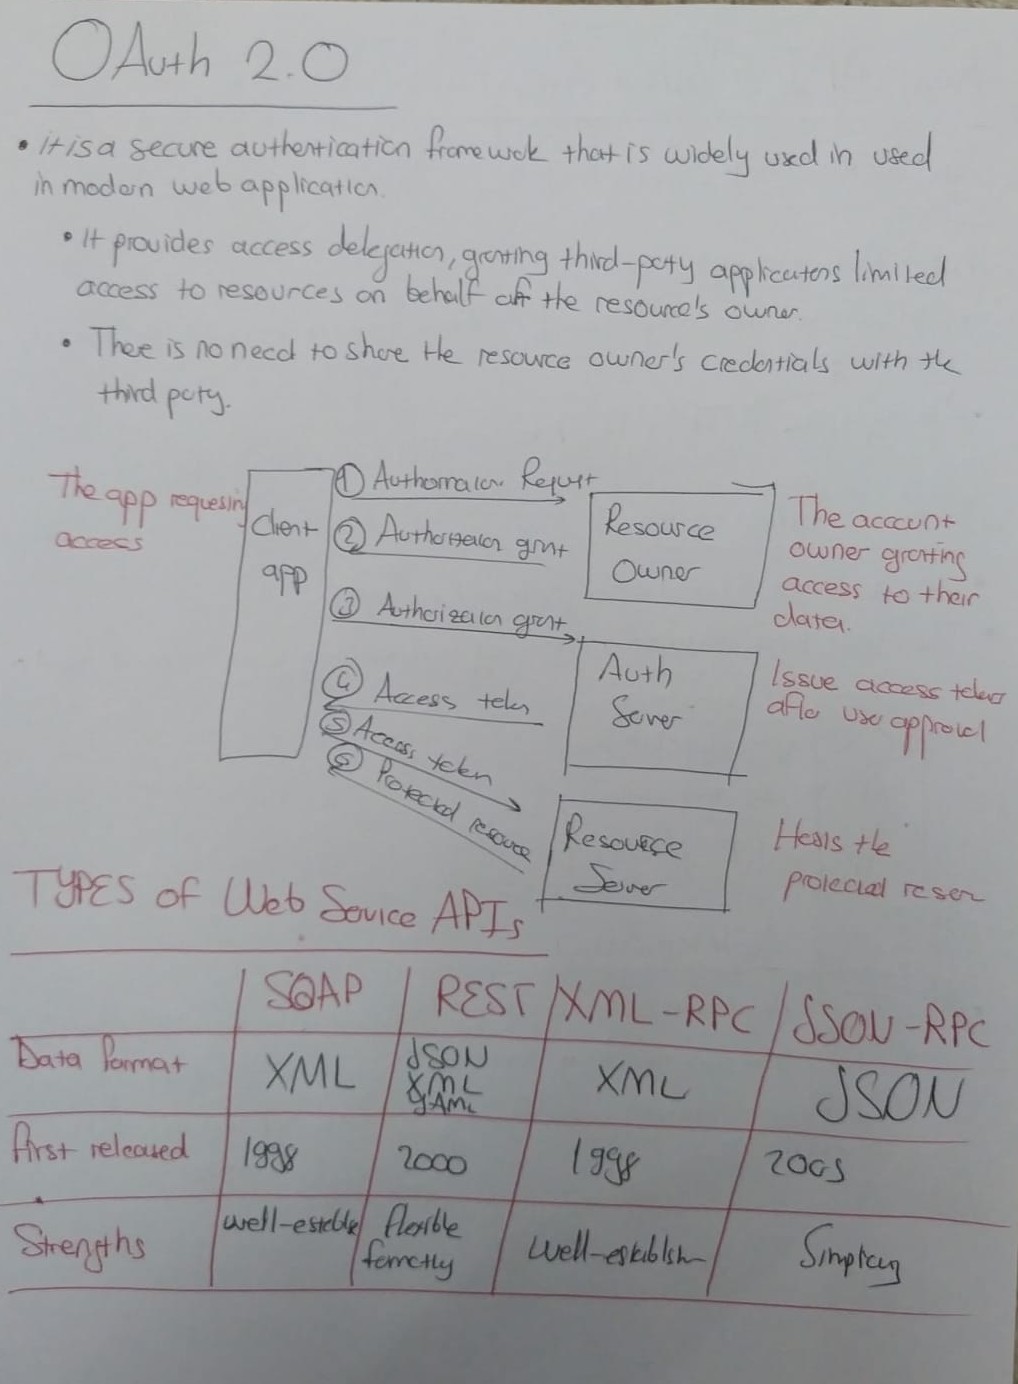 OAuth 2.0
• it is a secure authentication framewok that is widely used in used
in modern web application.
• It provides access delegation, granting third-party applications limited
access to resources on behalf off the resource's owner.
• There is no need to share the resource owner's credentials with the
third party.
The app requesing
access
Client
app
① Authorization Request
② Authorization grant
③ Authorization grant
④ Access token
⑤ Access token
⑥ Protected resource
Resource
Owner
The account
owner granting
access to their
data.
Auth
Server
Issue access tokens
after user approval
Resource
Server
Hosts the
protected
TYPES of Web Service APIs
SOAP REST XML-RPC JSON-RPC
Data format XML JSON XML JSON
XML
YAML
first released 1998 2000 1998 2005
Strengths well-estable flexible well-establish Simplicy
formatly